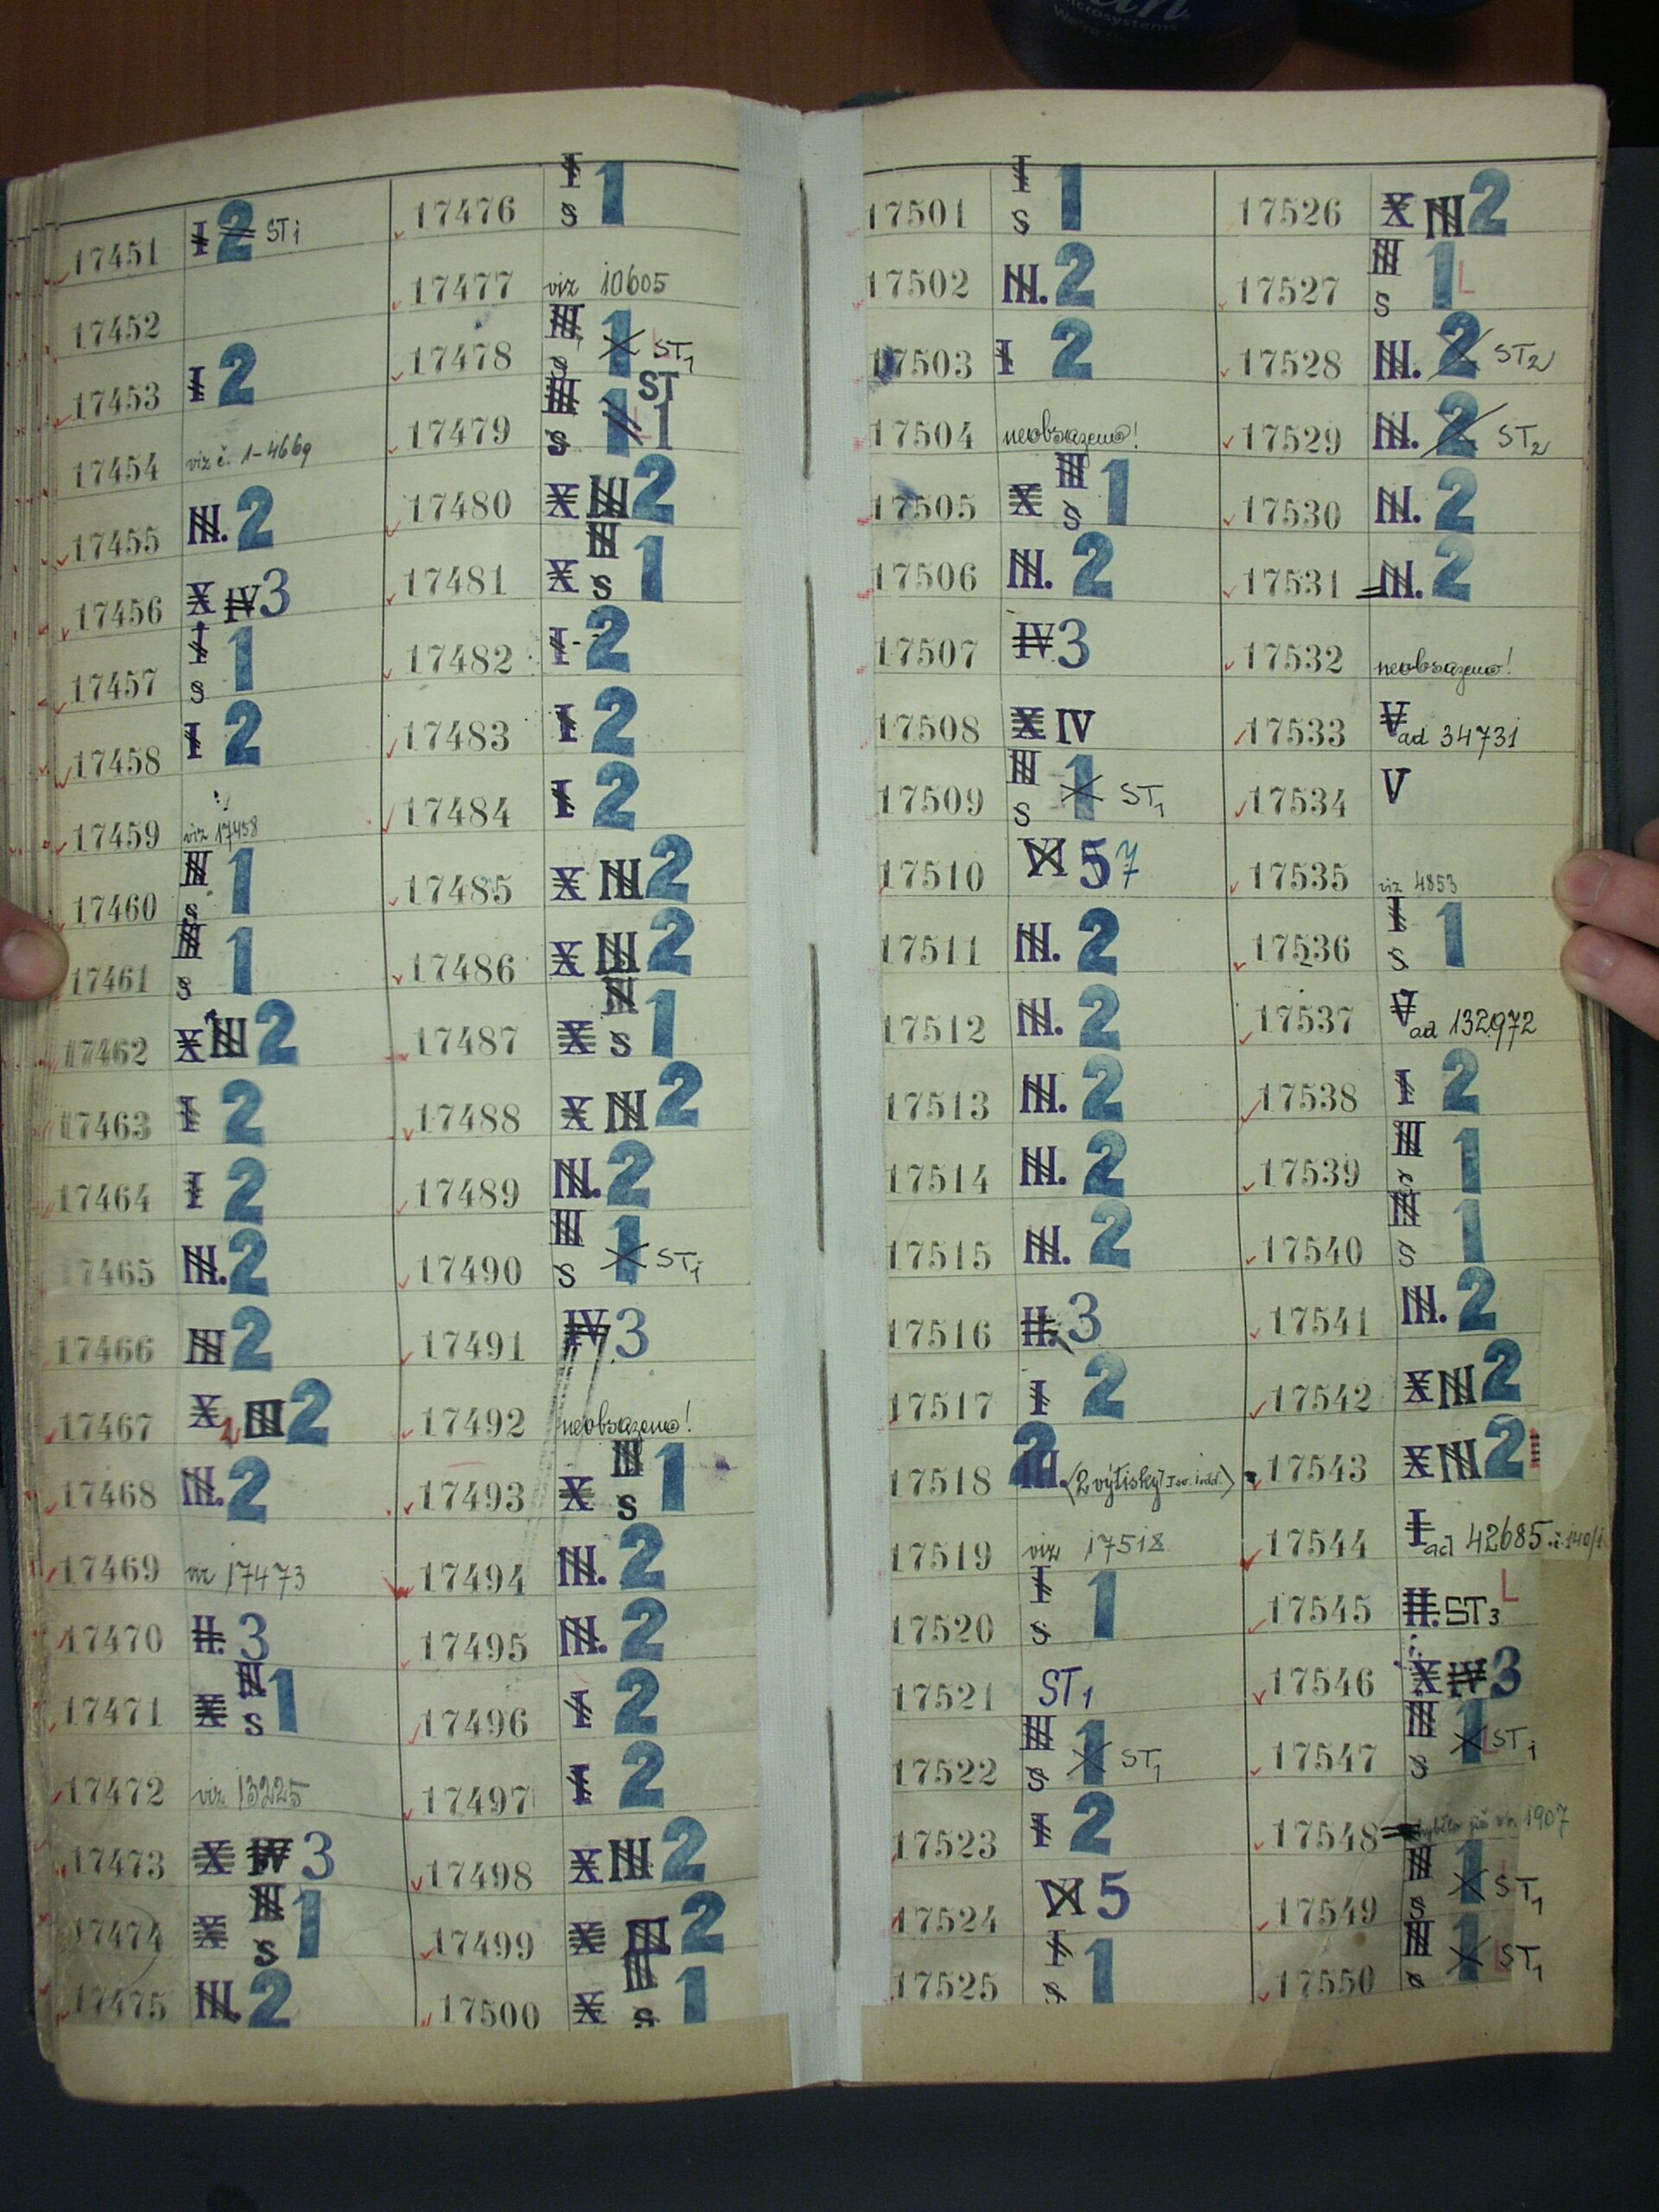 microsystems
17451 I 2 ST1
17452
17453 I 2
17454 viz č. 1-4669
17455 III. 2
17456 X IV 3
17457 I s 1
17458 I 2
17459 viz 17458
17460 III s 1
17461 III s 1
17462 X III 2
17463 I 2
17464 I 2
17465 III. 2
17466 III 2
17467 X 2 III 2
17468 III. 2
17469 viz 17473
17470 II. 3
17471 X III s 1
17472 viz 13225
17473 X IV 3
17474 X III s 1
17475 III. 2
17476 I s 1
17477 viz 10605
17478 III s 1 L ST1
17479 III s 1 L ST 1
17480 X III 2
17481 X III s 1
17482 I 2
17483 I 2
17484 I 2
17485 X III 2
17486 X III 2
17487 X III s 1
17488 X III 2
17489 III. 2
17490 III s 1 ST1
17491 IV 3
17492 neobsazeno!
17493 X III s 1
17494 III. 2
17495 III. 2
17496 I 2
17497 I 2
17498 X III 2
17499 X III 2
17500 X III s 1
17501 I s 1
17502 III. 2
17503 I 2
17504 neobsazeno!
17505 X III s 1
17506 III. 2
17507 IV 3
17508 X IV
17509 III s 1 ST1
17510 VI 5 7
17511 III. 2
17512 III. 2
17513 III. 2
17514 III. 2
17515 III. 2
17516 II. 3
17517 I 2
17518 2 III. (2 výtisky
17519 viz 17518
17520 I s 1
17521 ST1
17522 III s 1 ST1
17523 I 2
17524 VI 5
17525 I s 1
17526 X III 2
17527 III s 1 L
17528 III. 2 ST2
17529 III. 2 ST2
17530 III. 2
17531 III. 2
17532 neobsazeno!
17533 V ad 34731
17534 V
17535 viz 4853
17536 I s 1
17537 V ad 132972
17538 I 2
17539 III s 1
17540 III s 1
17541 III. 2
17542 X III 2
17543 X III 2
17544 I ad 42685
17545 II. ST3 L
17546 X IV 3
17547 III s 1 L ST1
17548 1907
17549 III s 1 L ST1
17550 III s 1 L ST1